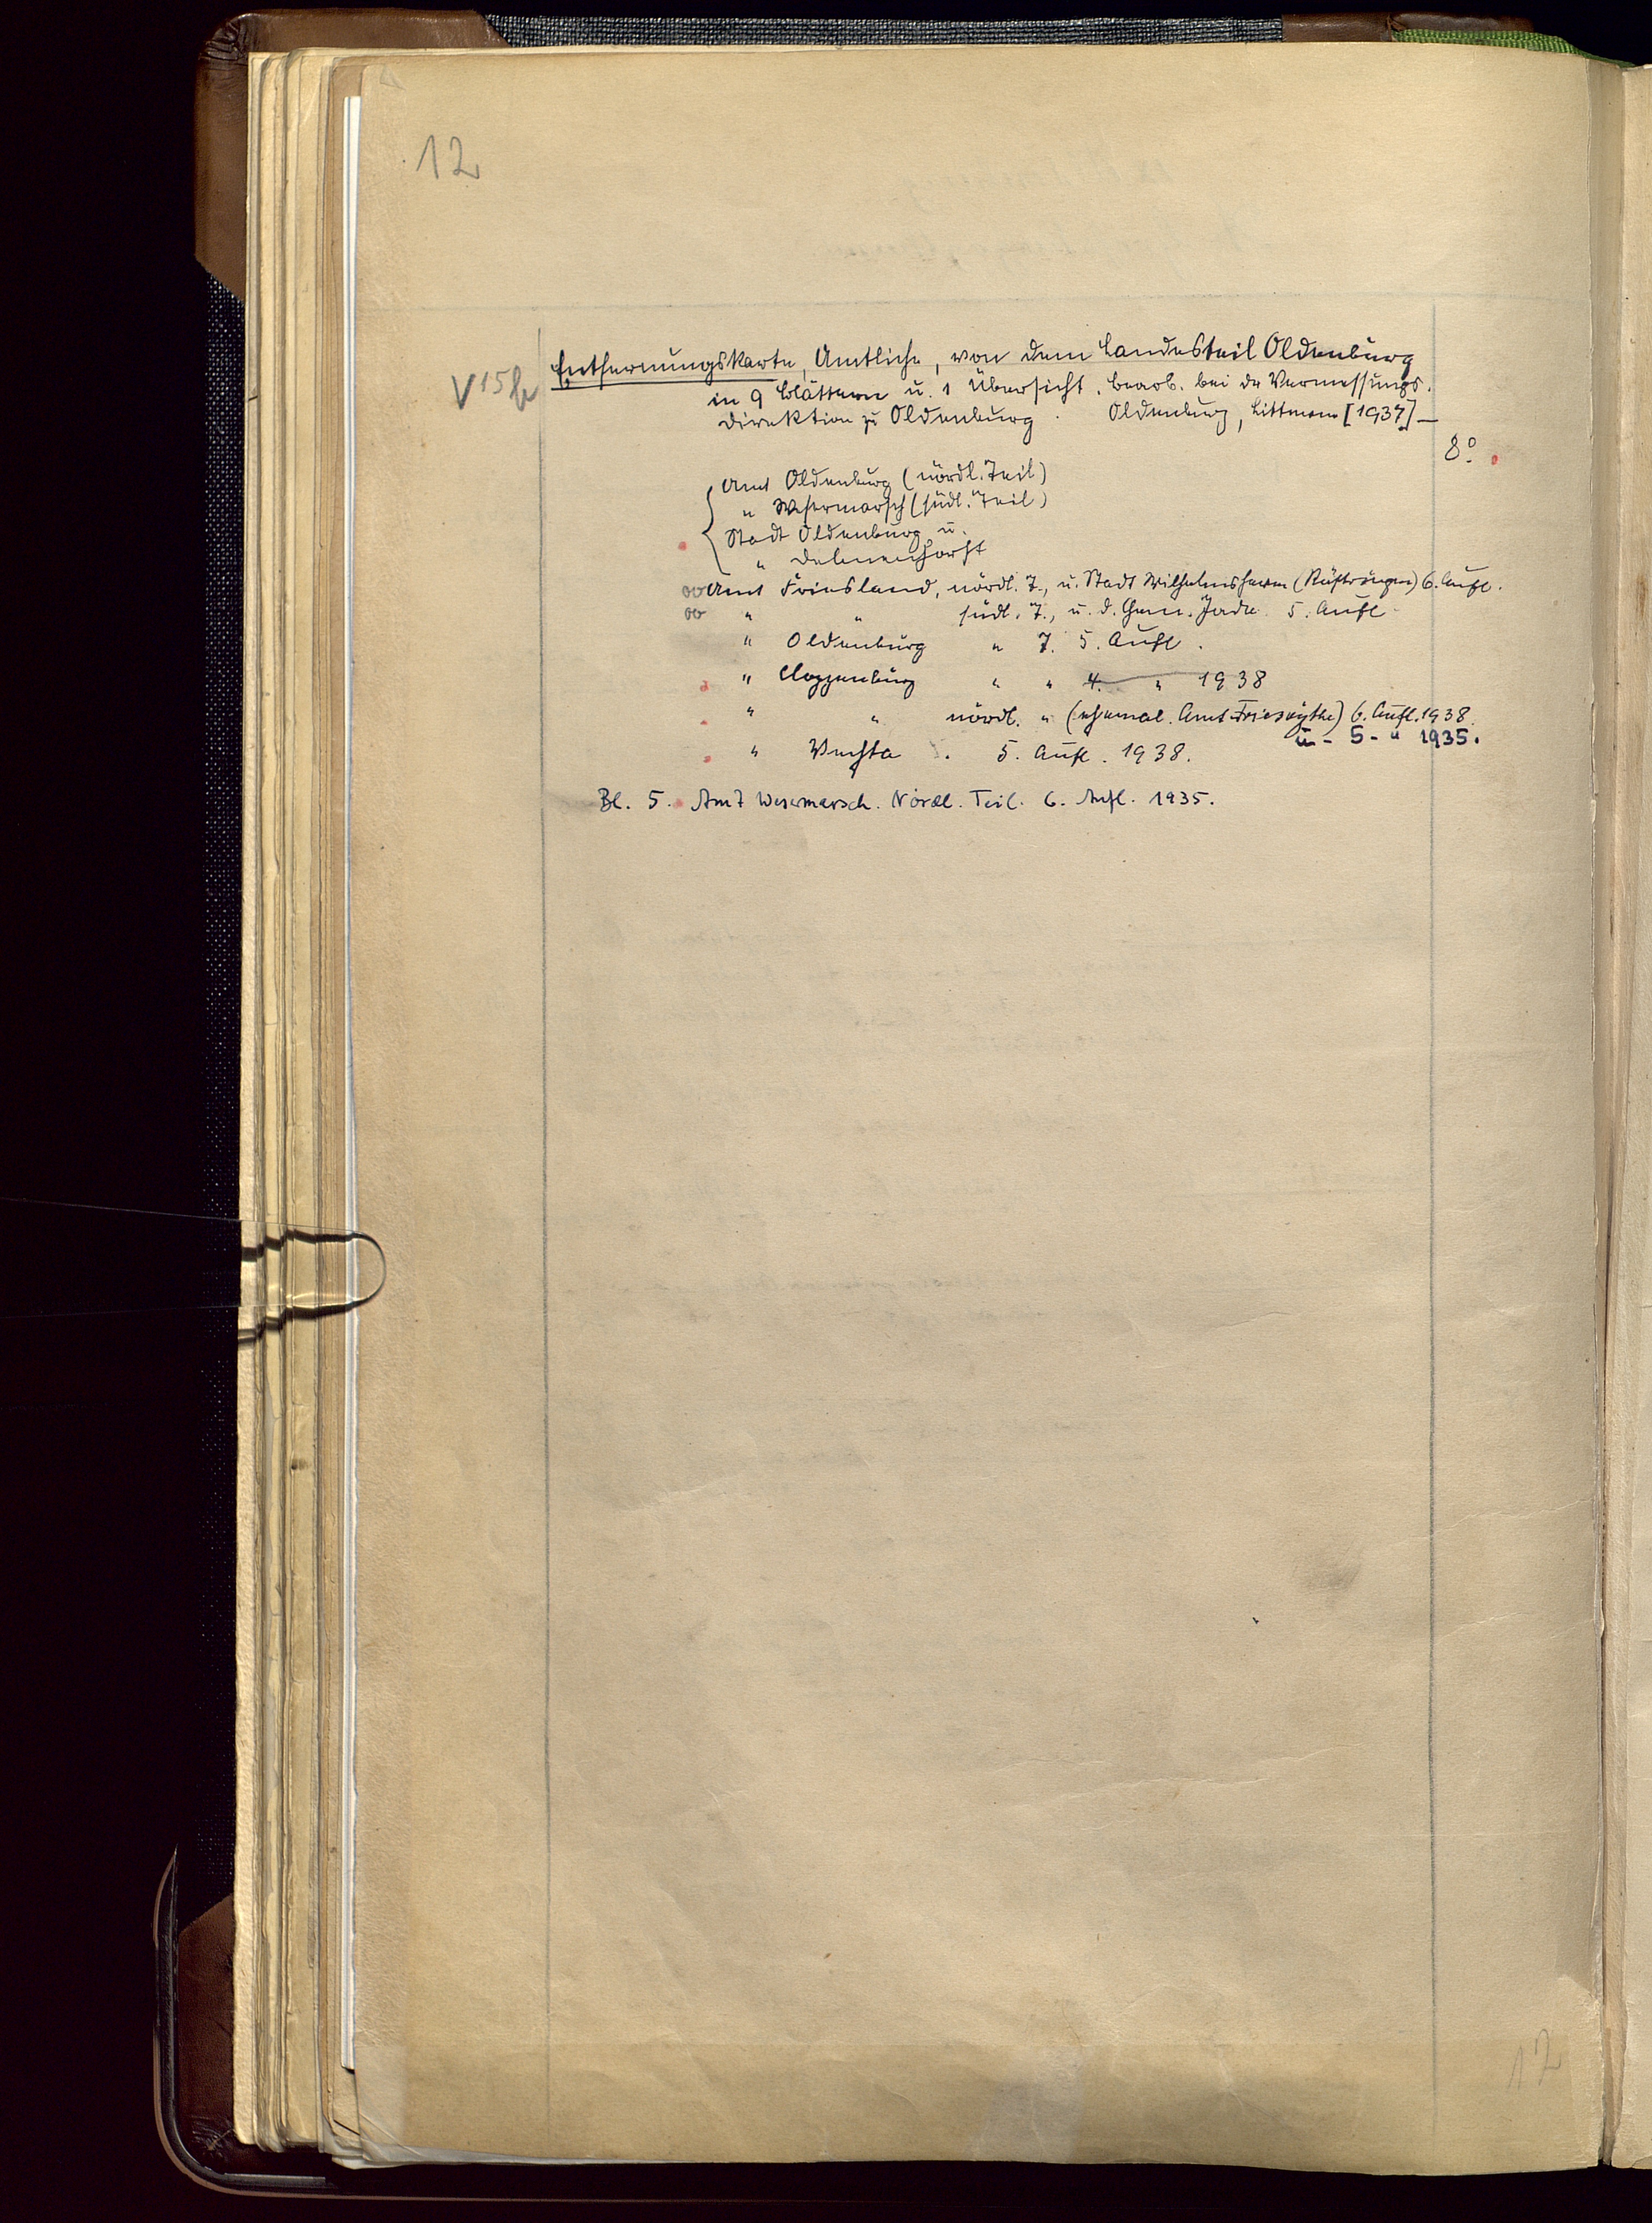 12
V 15 h
Entfernungskarte, Amtliche, von dem Landesteil Oldenburg
in 9 Blättern u. 1 Übersicht. Bearb. bei der Vermessungs-
direktion zu Oldenburg. Oldenburg, Littmann [1937] —
8°.
Amt Oldenburg (nördl. Teil)
" Wesermarsch (südl. Teil)
Stadt Oldenburg u.
" Delmenhorst
oo Amt Friesland, nördl. T., u. Stadt Wilhelmshaven (Rüstringen) 6. Aufl.
oo " " südl. T., u. d. Gem. Jade 5. Aufl.
" Oldenburg " T. 5. Aufl.
" Cloppenburg " " 4. " 1938
" " nördl. " (ehemal. Amt Friesoythe) 6. Aufl. 1938.
u - 5 - " 1935.
" Vechta . 5. Aufl. 1938.
Bl. 5. Amt Wesermarsch. Nördl. Teil. 6. Aufl. 1935.
12